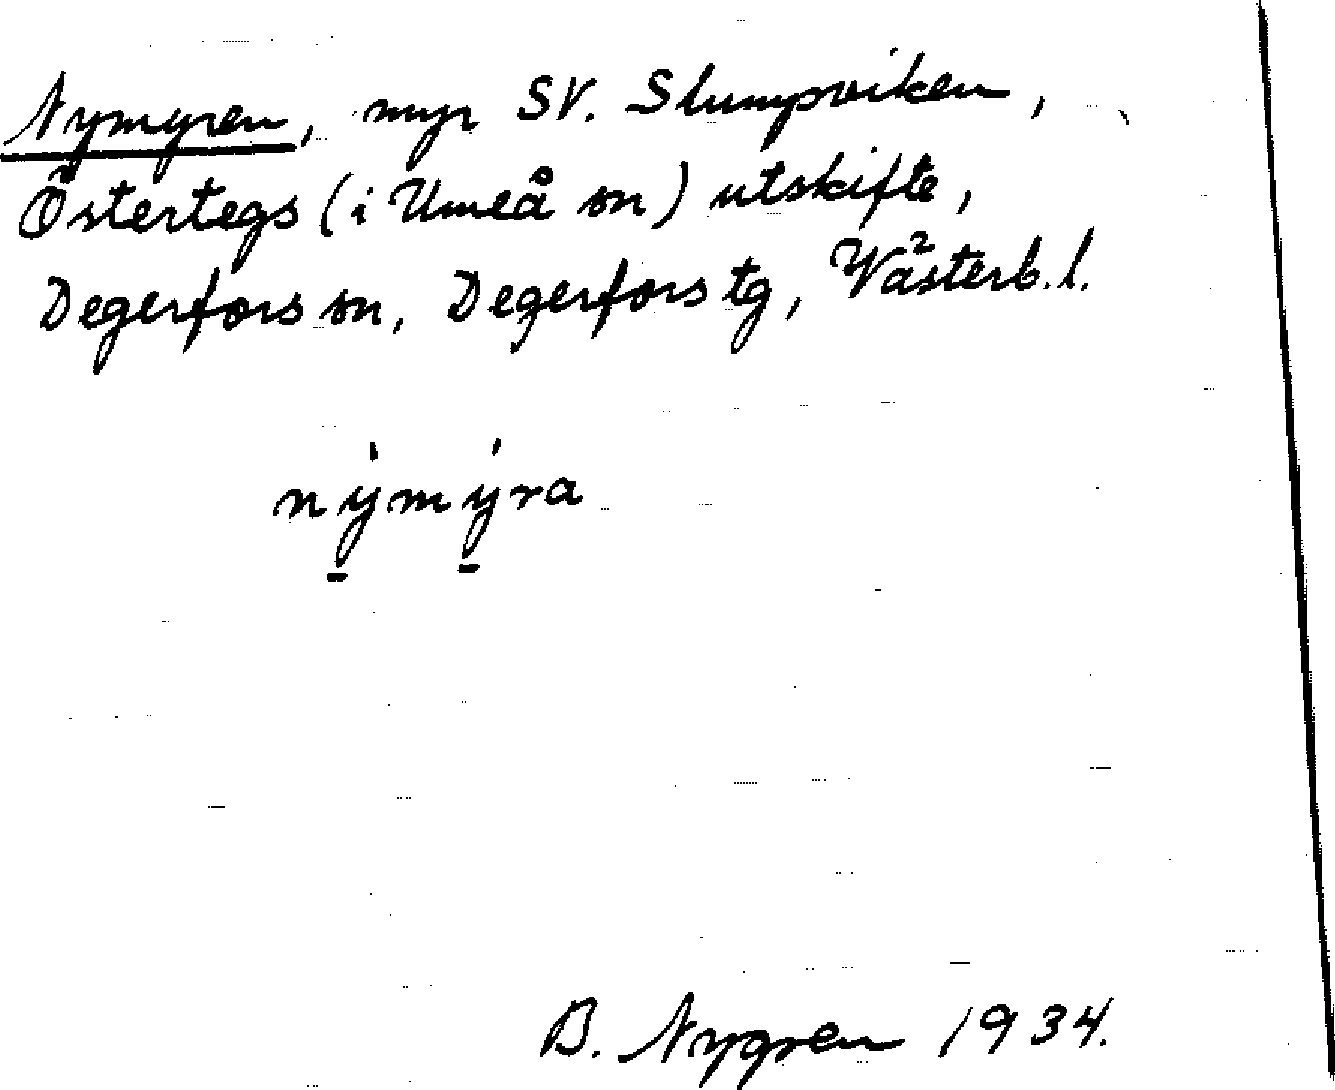 Nymyren, myr SV. Slumpviken,
Östertegs (i Umeå sn) utskifte,
Degerfors sn, Degerfors tg, Västerb. l.
ný̱mý̱ra
B. Nygren 1934.